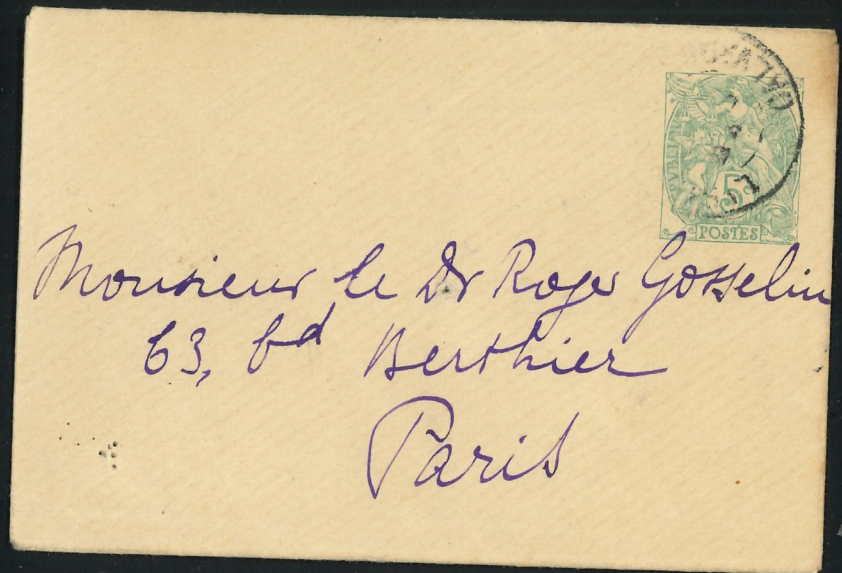 5
POSTES
Monsieur le Dr Roger Gosselin
63, bd Berthier
Paris